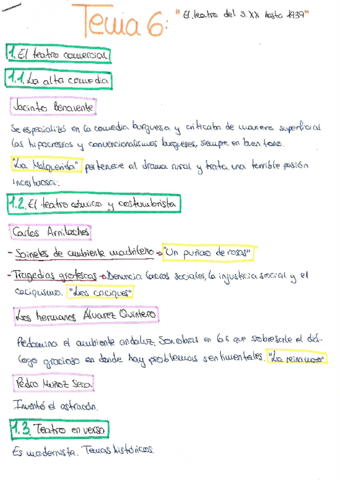 Tema 6: "El teatro del S.XX hasta 1939"
1. El teatro comercial
1.1. La alta comedia
Jacinto Benavente
Se especializó en la comedia burguesa y criticaba de manera superficial
las hipocresías y convencionalismos burgueses, siempre en buen tono.
"La Malquerida" pertenece al drama rural y trata una terrible pasión
incestuosa.
1.2. El teatro cómico y costumbrista
Carlos Arniches
- Sainetes de ambiente madrileño → "Un puñao de rosas"
- Tragedias grotescas → Denuncia sociales, la injusticia social y el
caciquismo. "Los caciques"
Los hermanos Álvarez Quintero
Predomina el ambiente andaluz. Son obras en las que sobresale el diá-
logo gracioso en donde hay problemas sentimentales. "La reina mora"
Pedro Muñoz Seca
Inventó el astracán.
1.3. Teatro en verso
Es modernista. Temas históricos.